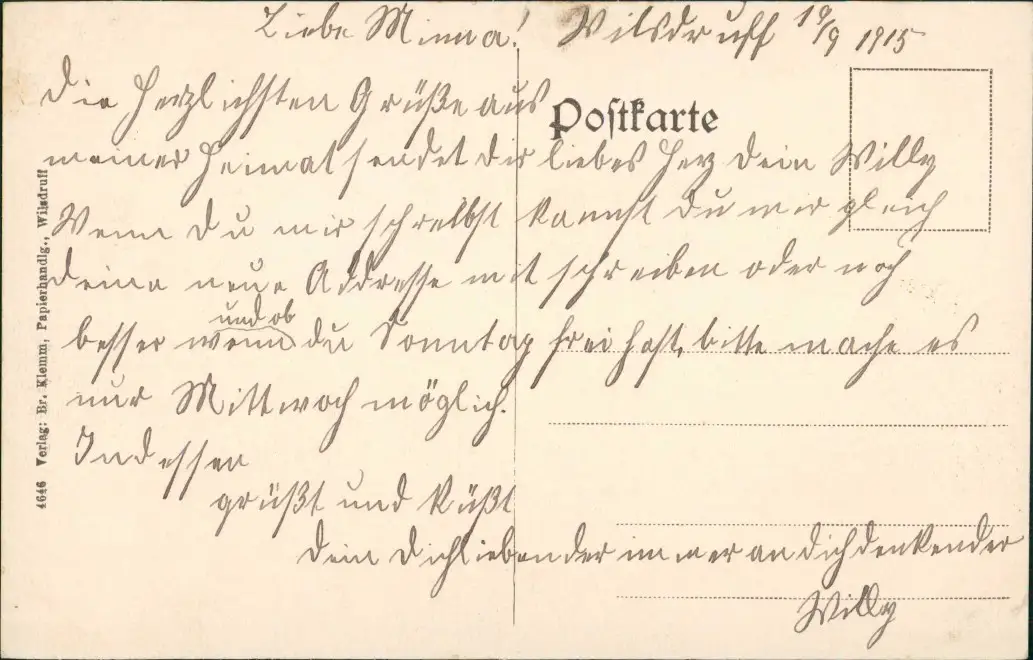 Liebe Minna! Wilsdruff 19/9 1915
Die herzlichsten Grüße aus
Postkarte
meiner Heimat sendet dir liebes Herz dein Willy
Wenn du mir schreibst kannst du mir gleich
deine neue Addresse mit schreiben oder noch
und ob
besser wenn du Sonntag frei hast, bitte mache es
nur Mittwoch möglich.
Indessen
grüßt und küßt
dein dichliebender immer an dich denkender
Willy
4646 Verlag: Br. Klemm, Papierhandlg., Wilsdruff